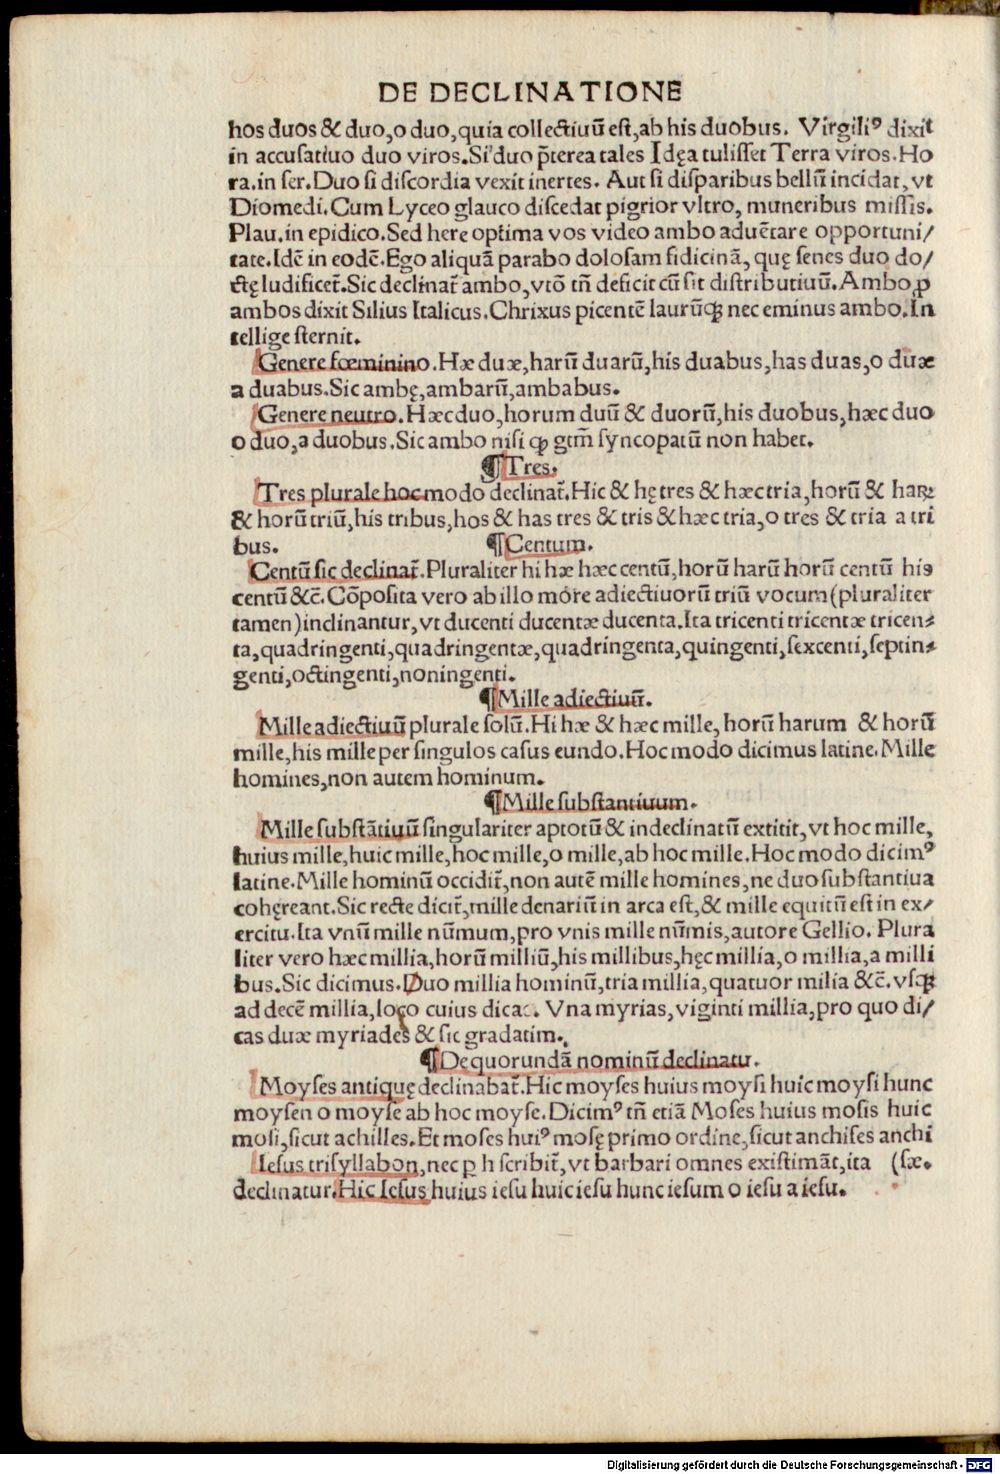 DE DECLINATIONE
hos duos & duo,o duo,quia collectiuū eſt,ab his duobus. Virgiliꝰ dixit
in accuſatiuo duo viros.Si duo p̄terea tales Idęa tuliſſet Terra viros.Ho
ra.in ſer.Duo ſi diſcordia vexit inertes. Aut ſi diſparibus bellū incidat, vt
Diomedi.Cum Lyceo glauco diſcedat pigrior vltro, muneribus miſſis.
Plau.in epidico.Sed here optima vos video ambo aduētare opportuni/
tate.Idē in eodē.Ego aliquā parabo doloſam fidicinā, quę ſenes duo do/
ctę ludificet̄.Sic declinat̄ ambo,vtō tn̄ deficit cū ſit diſtributiuū.Ambo,ꝓ
ambos dixit Silius Italicus.Chrixus picentē laurūqꝫ nec eminus ambo.In
tellige ſternit.
Genere fœminino.Hæ duæ,harū duarū,his duabus,has duas,o duæ
a duabus.Sic ambę,ambarū,ambabus.
Genere neutro.Hæc duo,horum duū & duorū,his duobus,hæc duo
o duo,a duobus.Sic ambo niſi ꝙ gtm̄ ſyncopatū non habet.
¶Tres.
Tres plurale hoc modo declinat̄.Hic & hę tres & hæc tria,horū & haꝝ
& horū triū,his tribus,hos & has tres & tris & hæc tria,o tres & tria a tri
bus. ¶Centum.
Centū ſic declinat̄.Pluraliter hi hæ hæc centū,horū harū horū centū his
centū &c̄. Cōpoſita vero ab illo more adiectiuorū triū vocum(pluraliter
tamen)inclinantur,vt ducenti ducentæ ducenta.Ita tricenti tricentæ tricen⸗
ta,quadringenti,quadringentæ,quadringenta,quingenti,ſexcenti,ſeptin⸗
genti,octingenti,noningenti.
¶Mille adiectiuū.
Mille adiectiuū plurale ſolū.Hi hæ & hæc mille, horū harum & horū
mille,his mille per ſingulos caſus eundo.Hoc modo dicimus latine.Mille
homines,non autem hominum.
¶Mille ſubſtantiuum.
Mille ſubſtātiuū ſingulariter aptotū & indeclinatū extitit,vt hoc mille,
huius mille,huic mille,hoc mille,o mille,ab hoc mille.Hoc modo dicimꝰ
latine.Mille hominū occidit̄,non autē mille homines,ne duo ſubſtantiua
cohęreant.Sic recte dicit̄,mille denariū in arca eſt,& mille equitū eſt in ex/
ercitu.Ita vnū mille nūmum,pro vnis mille nūmis,autore Gellio. Plura
liter vero hæc millia,horū milliū,his millibus,hęc millia,o millia,a milli
bus.Sic dicimus.Duo millia hominū,tria millia,quatuor milia &c̄. vſqꝫ
ad decē millia,loco cuius dicas. Vna myrias,viginti millia,pro quo di/
cas duæ myriades & ſic gradatim.
¶De quorundā nominū declinatu.
Moyſes antiquę declinabat̄.Hic moyſes huius moyſi huic moyſi hunc
moyſen o moyſe ab hoc moyſe.Dicimꝰ tn̄ etiā Moſes huius moſis huic
moſi,ſicut achilles.Et moſes huiꝰ moſę primo ordine,ſicut anchiſes anchi
Ieſus triſyllabon,nec ꝑ h ſcribit̄,vt barbari omnes exiſtimāt,ita (ſæ.
declinatur.Hic Ieſus huius ieſu huic ieſu hunc ieſum o ieſu a ieſu.
Digitalisierung gefördert durch die Deutsche Forschungsgemeinschaft - DFG